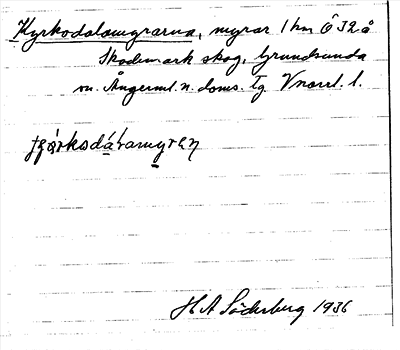 Kyrkodalamyrarna, myrar 1 km Ö 32 å
Skademark skog, Grundsunda
sn. Ångerml. n. doms. tg. Vnorrl. l.
H A Söderberg 1936